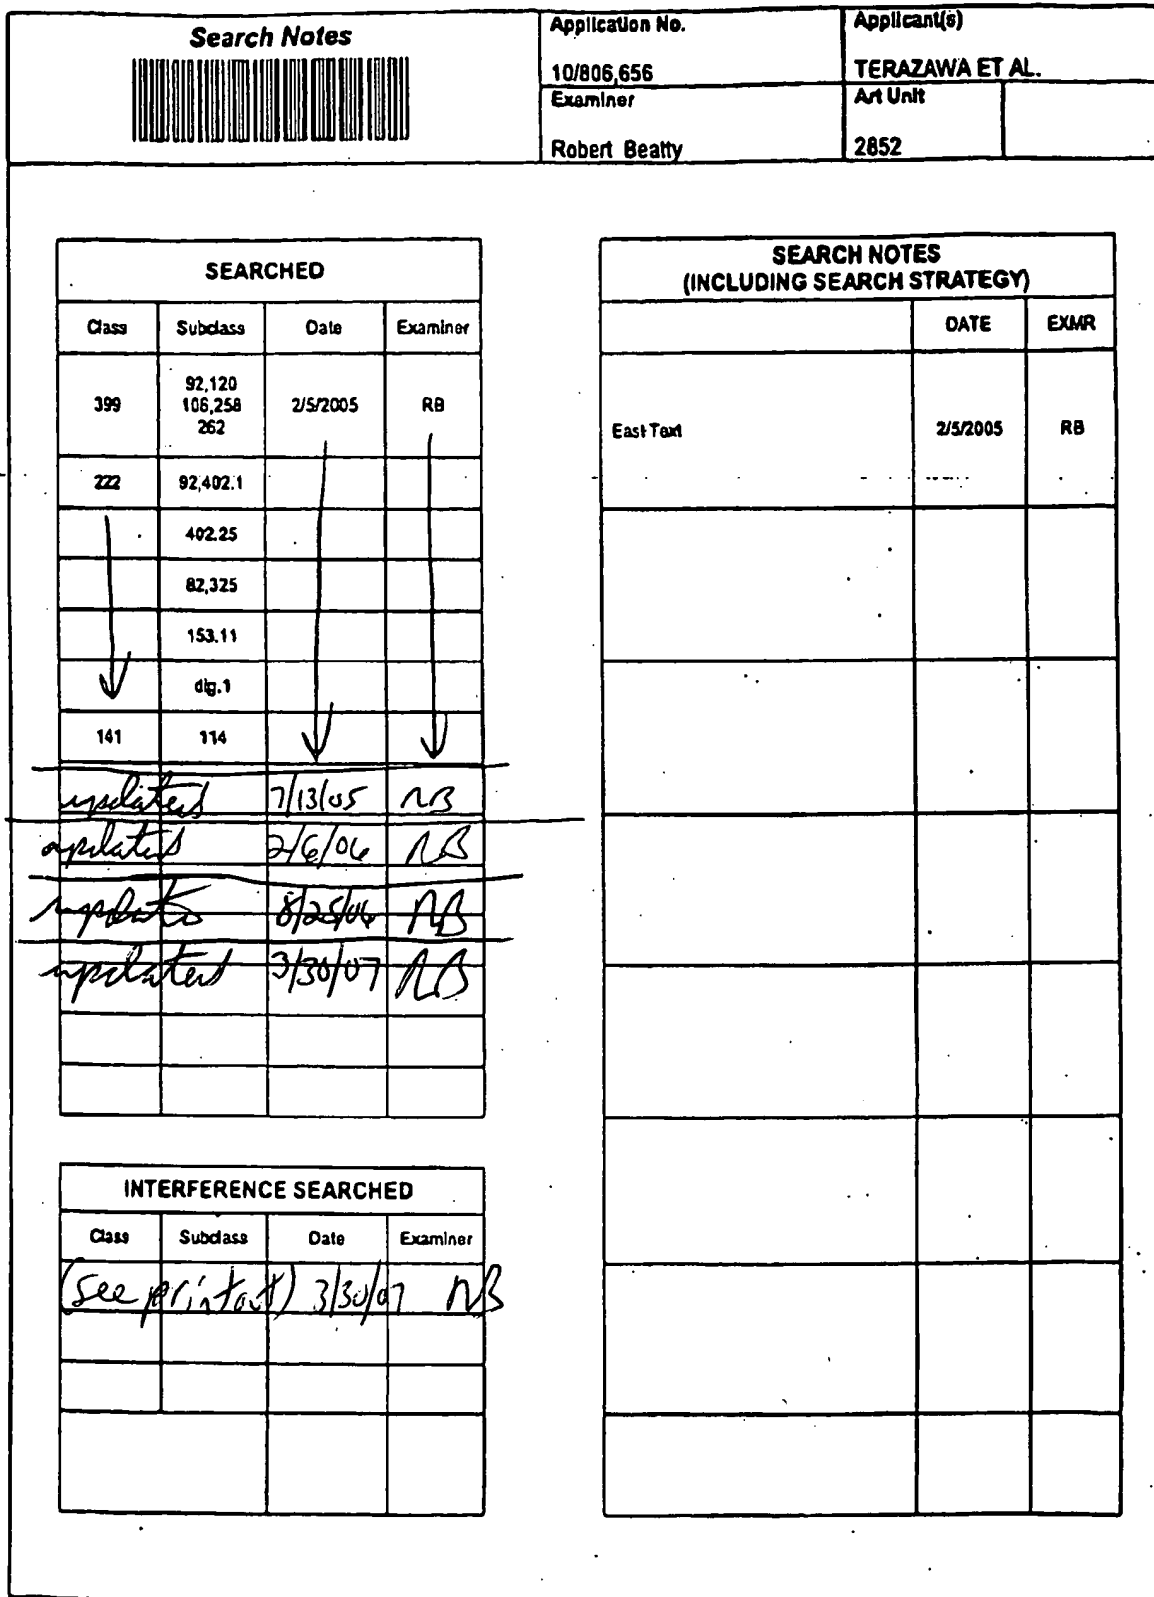 Search Notes
Application No.
10/806,656
Applicant(s)
TERAZAWA ET AL.
Examiner
Robert Beatty
Art Unit
2852
SEARCHED
Class Subclass Date Examiner
399 92,120 106,258 262 2/5/2005 RB
222 92,402.1
402.25
82,325
153.11
dig.1
141 114
updated 7/13/05 RB
updated 2/6/06 RB
update 8/25/06 RB
updated 3/30/07 RB
INTERFERENCE SEARCHED
Class Subclass Date Examiner
(see printout) 3/30/07 RB
SEARCH NOTES
(INCLUDING SEARCH STRATEGY)
DATE EXMR
East Text 2/5/2005 RB